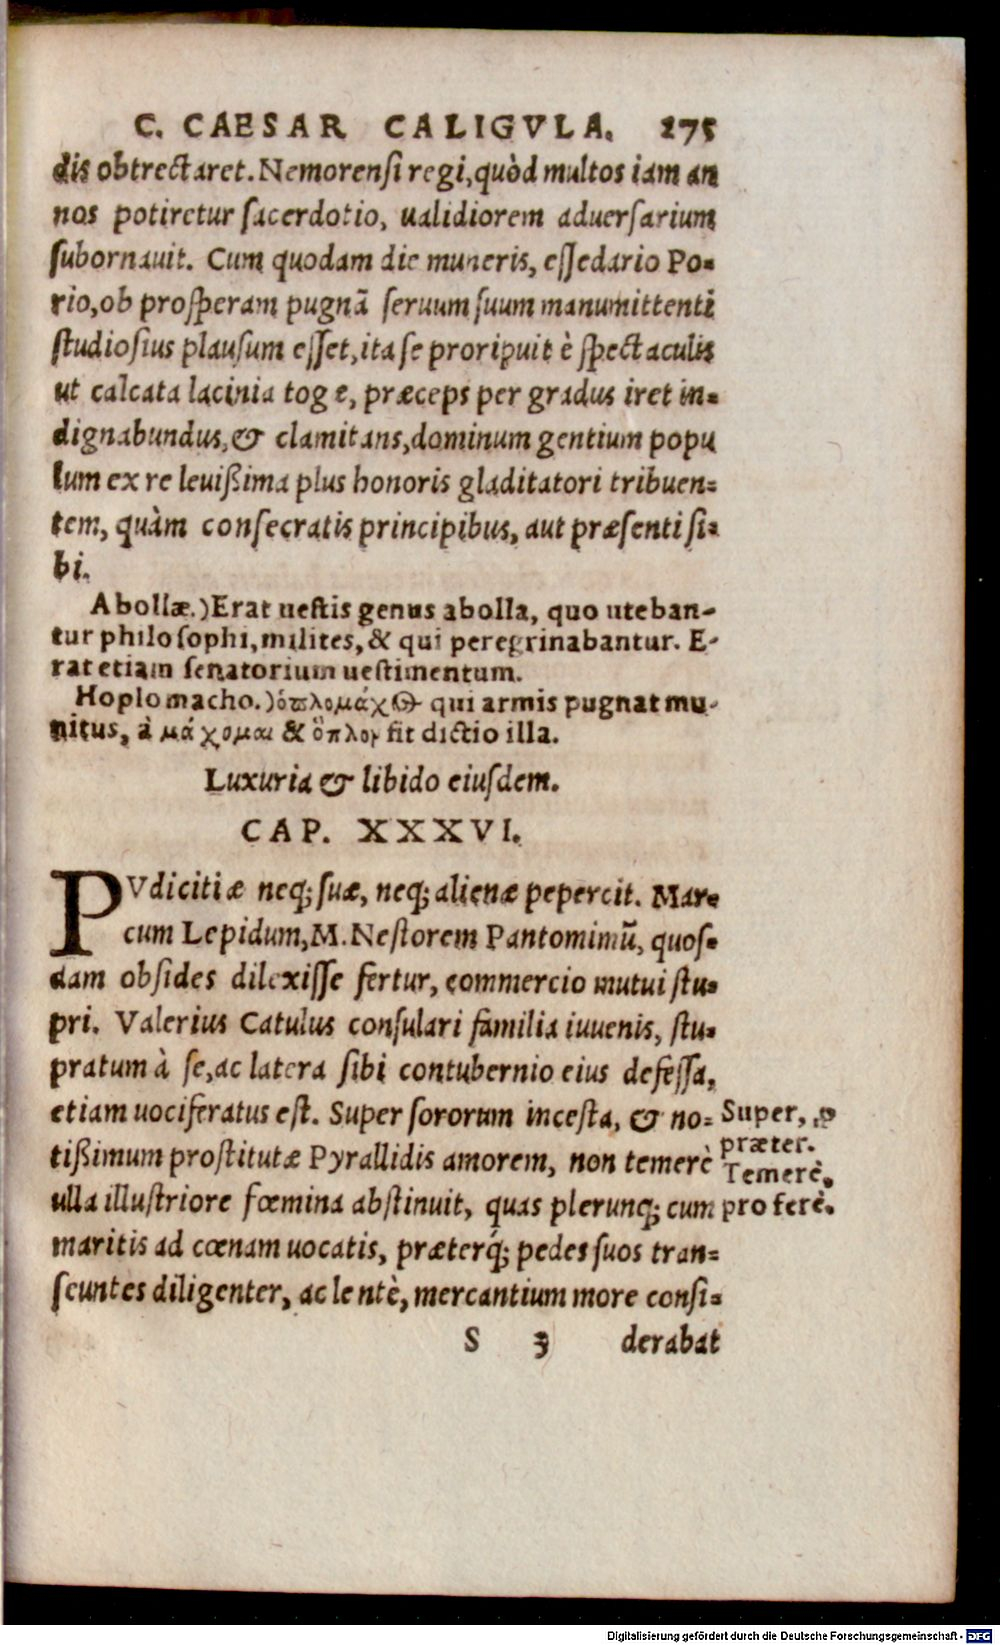 C. CAESAR CALIGVLA. 275
dis obtrectaret. Nemorensi regi, quòd multos iam an
nos potiretur sacerdotio, ualidiorem aduersarium
subornauit. Cum quodam die muneris, essedario Po-
rio, ob prosperam pugnã seruum suum manumittenti
studiosius plausum esset, ita se proripuit è spectaculis
ut calcata lacinia toge, præceps per gradus iret in-
dignabundus, & clamitans, dominum gentium popu
lum ex re leuißima plus honoris gladitatori tribuen-
tem, quàm consecratis principibus, aut præsenti si-
bi.
Abollæ.) Erat uestis genus abolla, quo uteban-
tur philosophi, milites, & qui peregrinabantur. E-
rat etiam senatorium uestimentum.
Hoplomacho.) ὁπλομάχος qui armis pugnat mu-
nitus, à μάχομαι & ὅπλον fit dictio illa.
Luxuria & libido eiusdem.
CAP. XXXVI.
PVdicitiæ neq; suæ, neq; alienæ pepercit. Mar-
cum Lepidum, M. Nestorem Pantomimũ, quos-
dam obsides dilexisse fertur, commercio mutui stu-
pri. Valerius Catulus consulari familia iuuenis, stu-
pratum à se, ac latera sibi contubernio eius defessa,
etiam uociferatus est. Super sororum incesta, & no-
tißimum prostitutæ Pyrallidis amorem, non temerè
ulla illustriore fœmina abstinuit, quas plerunq; cum
maritis ad cœnam uocatis, præterq́; pedes suos tran-
seuntes diligenter, ac lentè, mercantium more consi-
Super,
præter.
Temerè,
pro ferè.
S 3 derabat
Digitalisierung gefördert durch die Deutsche Forschungsgemeinschaft - DFG